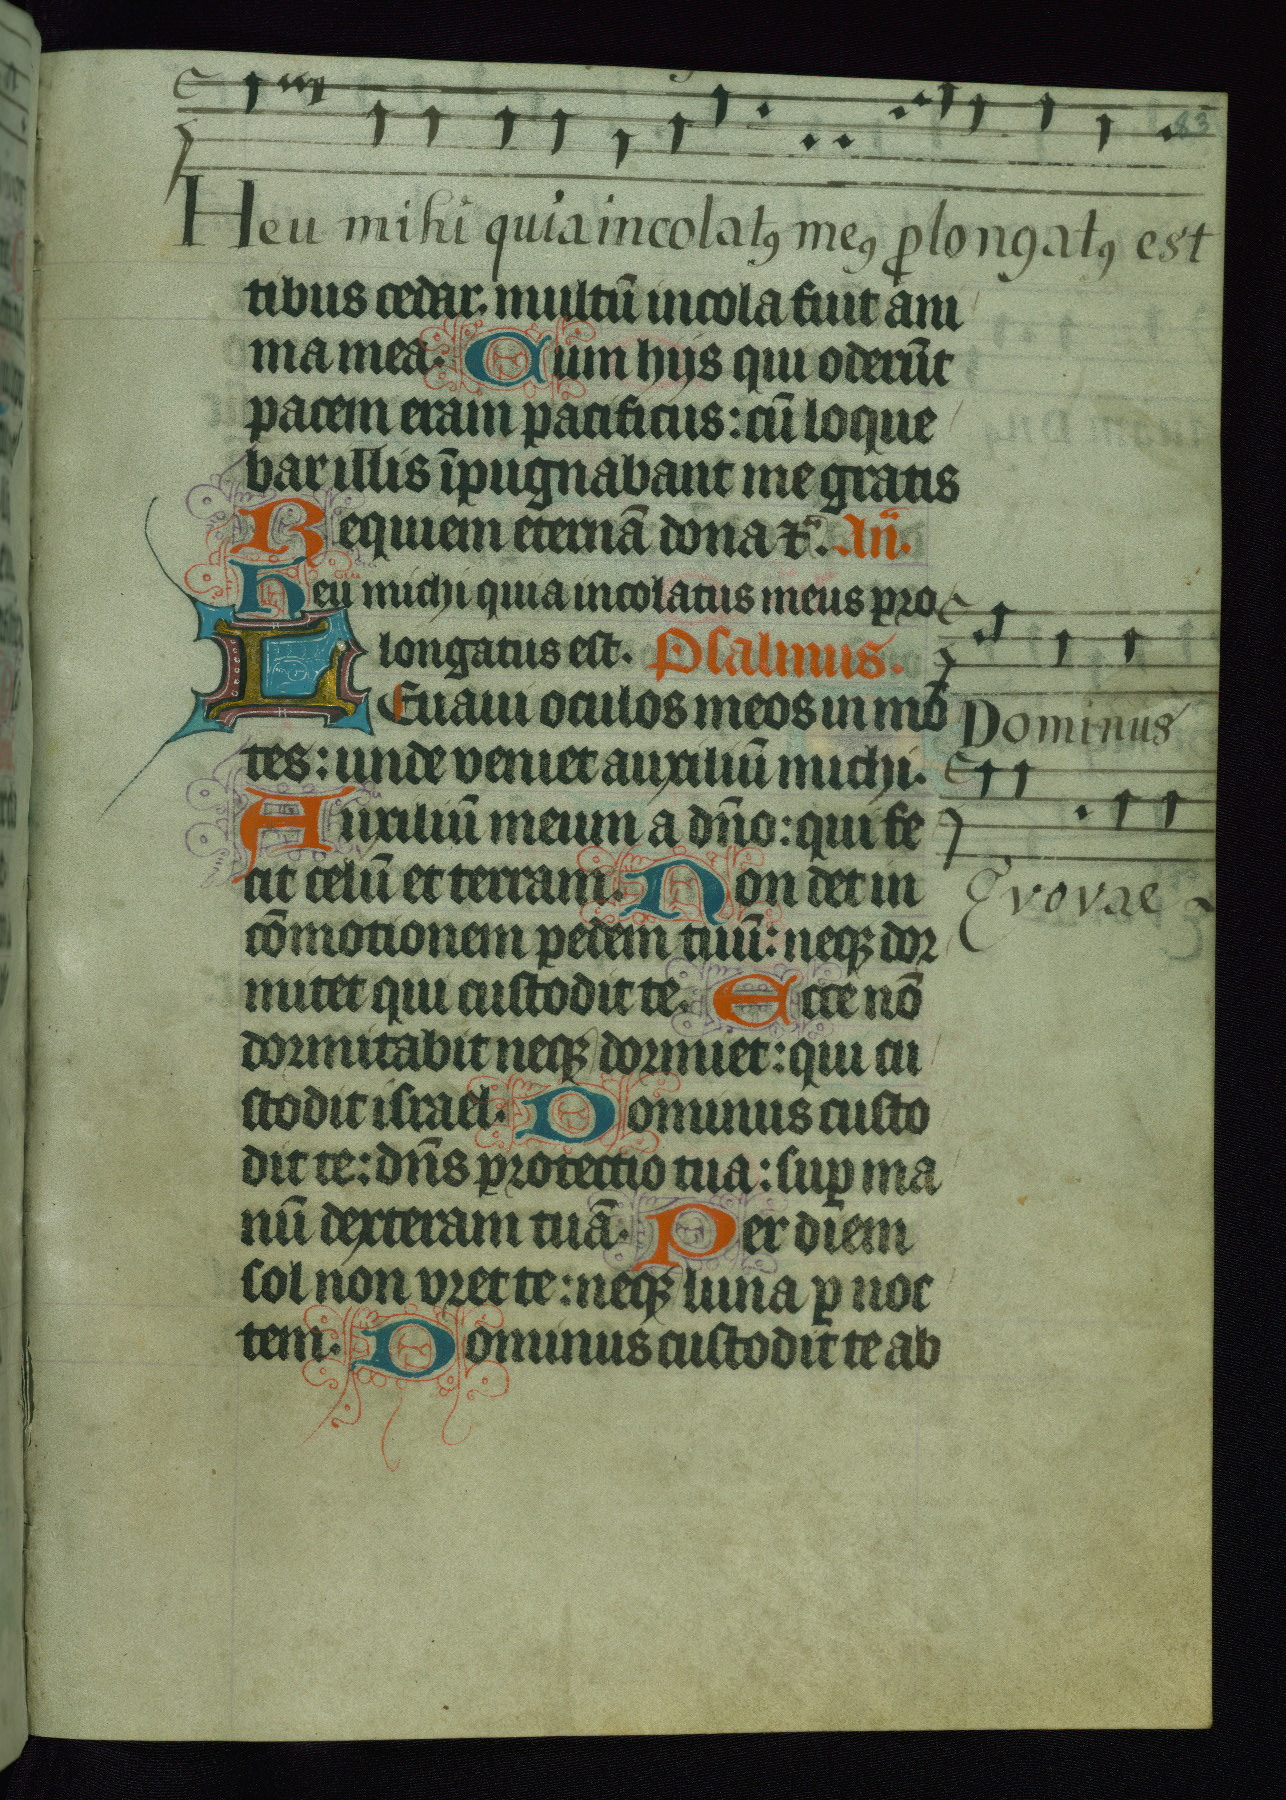 83
Heu mihi quia incolatꝰ meꝰ ꝓlongatꝰ est
tibus cedar. multū incola fuit ani
ma mea. Cum hijs qui oderūt
pacem eram pacificus: cū loque
bar illis īpugnabant me gratis
Requiem eternā dona
Heu michi quia incolatus meus pro
longatus est. Psalmus.
Leuaui oculos meos in mō
tes: unde veniet auxiliū michi.
Auxiliū meum a dn̄o: qui fe
cit celū et terram. Non det in
cōmotionem pedem tuū: neqꝫ dor
mitet qui custodit te. Ecce nō
dormitabit neqꝫ dormiet: qui cu
stodit israel. Dominus custo
dit te: dn̄s protectio tua: suꝑ ma
nū dexteram tuā. Per diem
sol non vret te: neqꝫ luna ꝑ noc
tem. Dominus custodit te ab
Dominus
Evovae